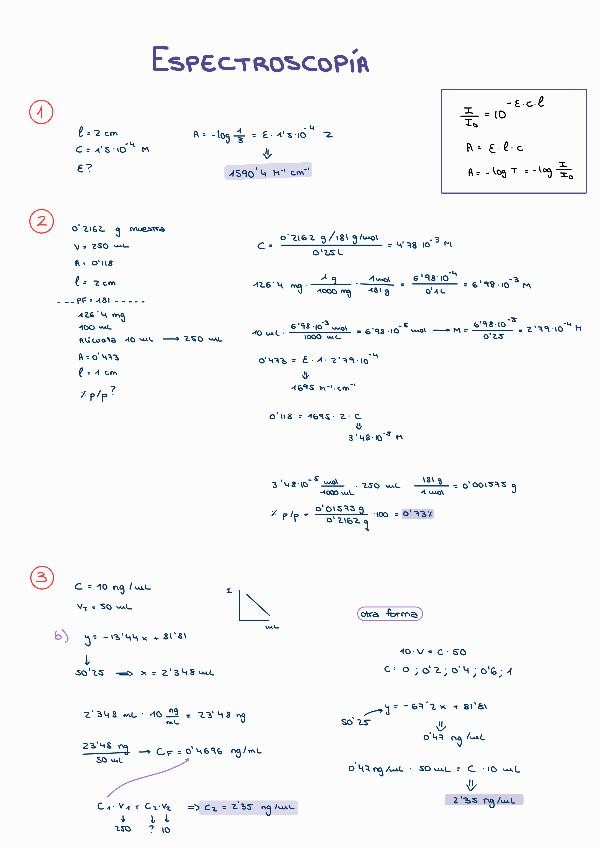 ESPECTROSCOPÍA
I/I₀ = 10^-ε·c·l
A = ε·l·c
A = -log T = -log I/I₀
1
l = 2 cm
C = 1'5·10⁻⁴ M
ε?
A = -log 1/3 = ε·1'5·10⁻⁴ 2
⇓
1590'4 M⁻¹ cm⁻¹
2
0'2162 g muestra
V = 250 mL
A = 0'118
l = 2 cm
---PF = 181-----
126'4 mg
100 mL
Alícuota 10 mL → 250 mL
A = 0'473
l = 1 cm
% p/p?
C = 0'2162 g/181 g/mol / 0'25L = 4'78·10⁻³ M
126'4 mg · 1 g/1000 mg · 1mol/181 g = 6'98·10⁻⁴/0'1L = 6'98·10⁻³ M
10 mL · 6'98·10⁻³ mol/1000 mL = 6'98·10⁻⁵ mol → M = 6'98·10⁻⁵/0'25 = 2'79·10⁻⁴ M
0'473 = ε·1·2'79·10⁻⁴
⇓
1695 M⁻¹·cm⁻¹
0'118 = 1695·2·C
⇓
3'48·10⁻⁵ M
3'48·10⁻⁵ mol/1000 mL · 250 mL 181 g/1 mol = 0'001575 g
% p/p = 0'01573 g/0'2162 g ·100 = 0'73%
3
C = 10 ng/mL
V_T = 50 mL
I
mL
b) y = -13'44x + 81'81
↓
50'25 ⇒ x = 2'348 mL
2'348 mL · 10 ng/mL = 23'48 ng
23'48 ng/50 mL → C_F = 0'4696 ng/mL
C₁·V₁ = C₂·V₂ ⇒ C₂ = 2'35 ng/mL
↓ ↓ ↓
250 ? 10
otra forma
10·V = C·50
C = 0; 0'2; 0'4; 0'6; 1
y = -67'2x + 81'81
50'25
⇓
0'47 ng/mL
0'47 ng/mL · 50 mL = C·10 mL
⇓
2'35 ng/mL